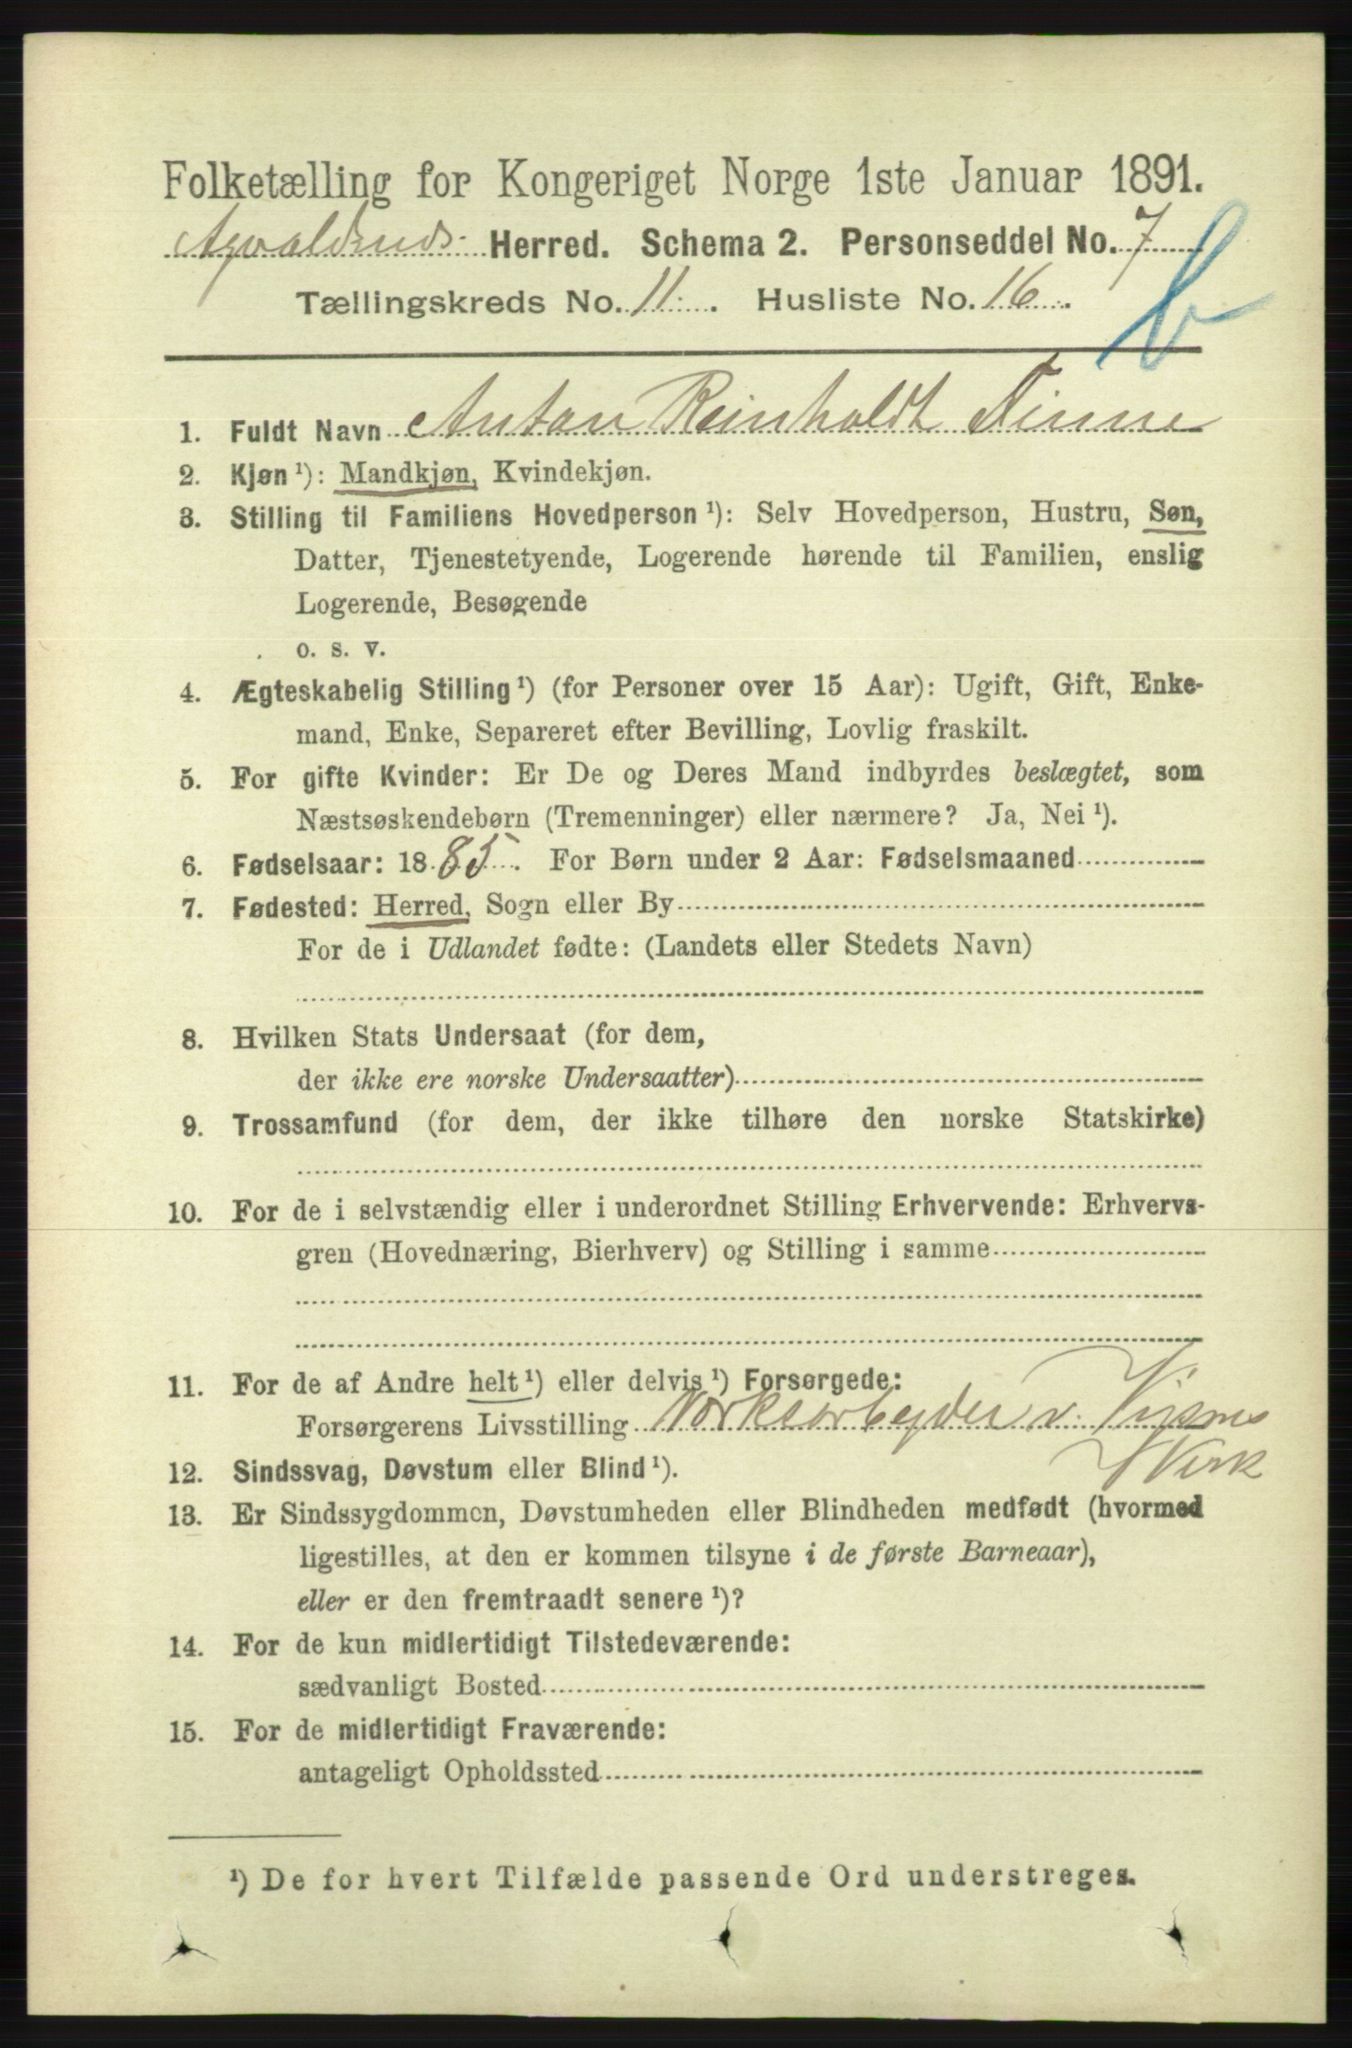 Folketælling for Kongeriget Norge 1ste Januar 1891.
Agvaldsnds Herred. Schema 2. Personseddel No. 7
Tællingskreds No. 11. Husliste No. 16.
b
1. Fuldt Navn Anton Reinholdt Finne
2. Kjøn ¹): Mandkjøn, Kvindekjøn.
3. Stilling til Familiens Hovedperson ¹): Selv Hovedperson, Hustru, Søn,
Datter, Tjenestetyende, Logerende hørende til Familien, enslig
Logerende, Besøgende
o. s. v.
4. Ægteskabelig Stilling ¹) (for Personer over 15 Aar): Ugift, Gift, Enke-
mand, Enke, Separeret efter Bevilling, Lovlig fraskilt.
5. For gifte Kvinder: Er De og Deres Mand indbyrdes beslægtet, som
Næstsøskendebørn (Tremenninger) eller nærmere? Ja, Nei ¹).
6. Fødselsaar: 1885. For Børn under 2 Aar: Fødselsmaaned
7. Fødested: Herred, Sogn eller By
For de i Udlandet fødte: (Landets eller Stedets Navn)
8. Hvilken Stats Undersaat (for dem,
der ikke ere norske Undersaatter)
9. Trossamfund (for dem, der ikke tilhøre den norske Statskirke)
10. For de i selvstændig eller i underordnet Stilling Erhvervende: Erhvervs-
gren (Hovednæring, Bierhverv) og Stilling i samme
11. For de af Andre helt ¹) eller delvis ¹) Forsørgede:
Forsørgerens Livsstilling Værksarbeyder v. Vigsnes
Værk
12. Sindssvag, Døvstum eller Blind ¹).
13. Er Sindssygdommen, Døvstumheden eller Blindheden medfødt (hvormed
ligestilles, at den er kommen tilsyne i de første Barneaar),
eller er den fremtraadt senere ¹)?
14. For de kun midlertidigt Tilstedeværende:
sædvanligt Bosted
15. For de midlertidigt Fraværende:
antageligt Opholdssted
¹) De for hvert Tilfælde passende Ord understreges.